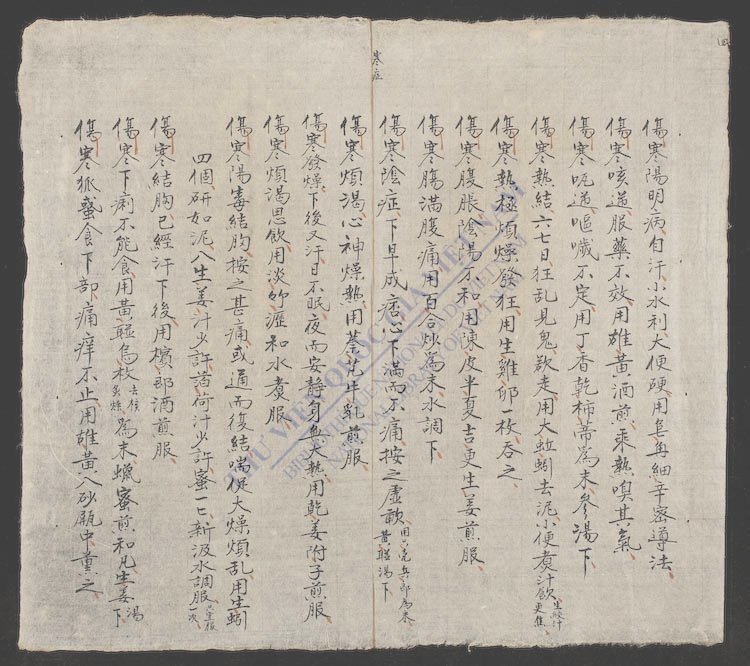 傷寒陽明病自汗小水利大便硬用皂角細辛密導法
傷寒咳逆服藥不效用雄黃酒煎乘熱嗅其氣
傷寒呃逆嘔噦不定用丁香乾柿蒂為末參湯下
傷寒熱結六七日狂乱見鬼欲走用大蚯蚓去泥小便煮汁飲
傷寒熱極煩燥發狂用生雞卵一枚吞之
傷寒腹脹陰陽不和用陳皮半夏吉更生姜煎服
傷寒腸满腹痛用百合炒為末水調下
傷寒陰症下早成痞心下滿而不痛按之虛軟
寒症
傷寒煩渴心神燥熱用蔞 牛乳煎服
傷寒發燥下後又汗日不眠夜而安静身無大熱用乾姜附子煎服
傷寒煩渴思飲用淡竹瀝和水煮服
傷寒陽毒結胸按之甚痛或通而復結喘促大燥煩乱用生蚓
四個研如泥入生姜汁少許薄荷汁少許蜜一匕新汲水調服
傷寒結胸已經汗下後用檳榔酒煎服
傷寒下痢不能食用黃連烏枚去核為末蠟蜜煎和凡生姜湯下
傷寒狐惑食下部痛痒不止用雄黃入砂瓶中薰之
THƯ VIỆN QUỐC GIA VIỆT NAM